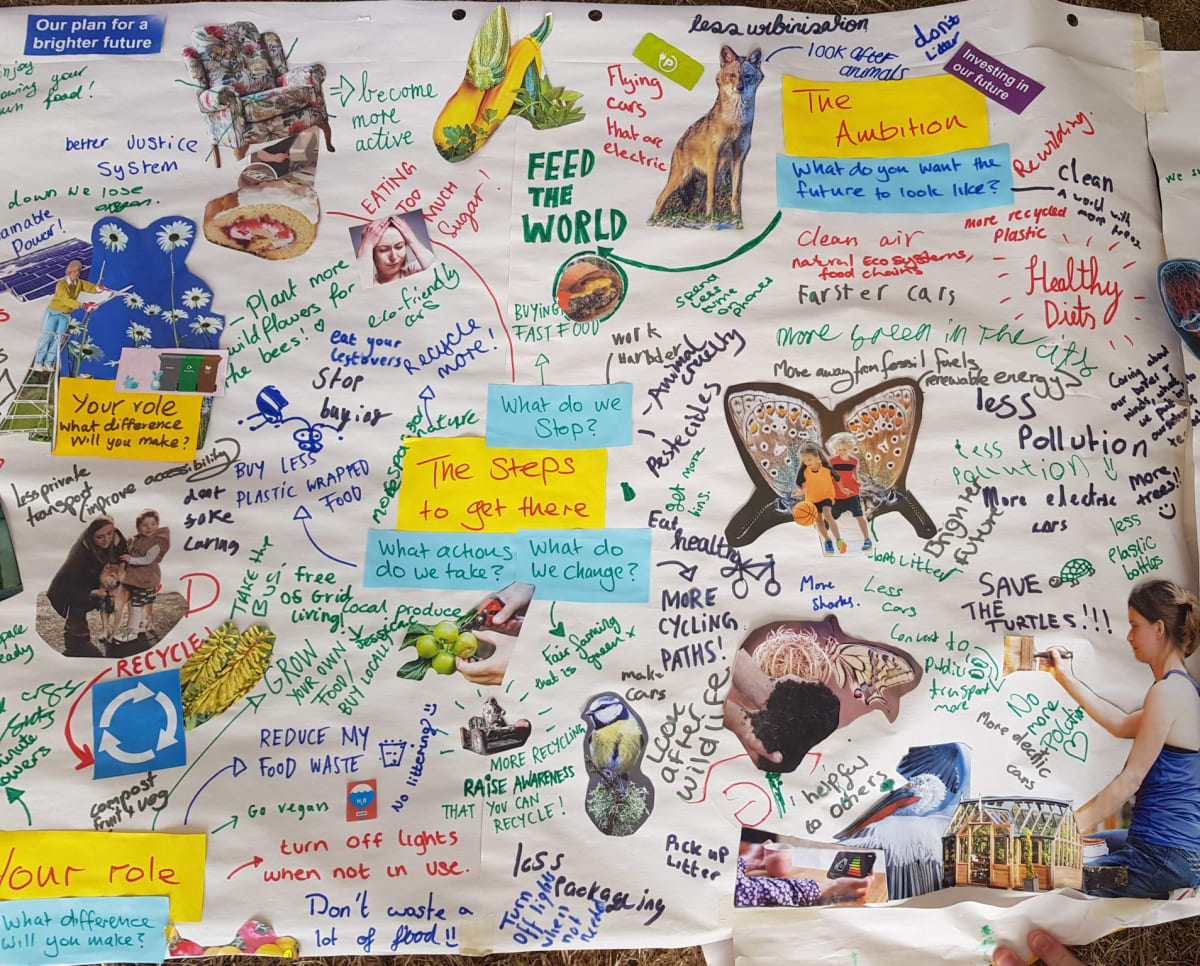 Our plan for a
brighter future
own food!
become
more
active
better Justice
System
down we lose
Power!
EATING
TOO
MUCH
Sugar!
FEED
THE
WORLD
Flying
cars
that are
electric
P
less
look after
animals
don't
Litter
Investing in
our future
The
Ambition
What do you want the
future to look like?
Rewilding.
clean
more recycled
Plastic
Clean air
natural Eco systems,
food chains
Farster cars
Healthy
Diets
spend
less
time
on
phones
more green in the city
Move away from fossil fuels
renewable energy
less
Pollution
less
pollution
Brighter
Future
More electric
cars
More
trees!!
less
plastic
bottles
Caring about
Plant more
wildflowers for
the bees!
eco-friendly
cars
BUYING
FAST FOOD
work
Harder
Animal
cruelty
Pestecides
eat your
leftovers
RECYCLE
MORE!
Stop
buying
What do we
Stop?
Your role
what difference
will you make?
less private
transport
improve accessibility
BUY LESS
PLASTIC WRAPPED
FOOD
nature
The Steps
to get there
get more
bins.
What actions
do we take?
What do
We change?
Eat
healthy
MORE
CYCLING
PATHS!
More
Sharks.
Less
cars
SAVE
THE
TURTLES!!!
TAKE THE
BUS!
free
OS Grid
living!
Local produce
GROW
YOUR OWN
FOOD/
BUY LOCALLY
Fair farming
that is
green x
make
cars
RECYCLE!
Look
after
wildlife
public
transport
more
No
more
Pollution
More electric
cars
REDUCE MY
FOOD WASTE
No littering!!
MORE RECYCLING
RAISE AWARENESS
THAT YOU CAN
RECYCLE!
compost
fruit & veg
Go vegan
H₂O
helpful
to others
turn off lights
when not in use.
Pick up
Litter
less
packadging
Turn
off lights
when
not
needed
Your role
What difference
will you make?
Don't waste a
lot of food!!